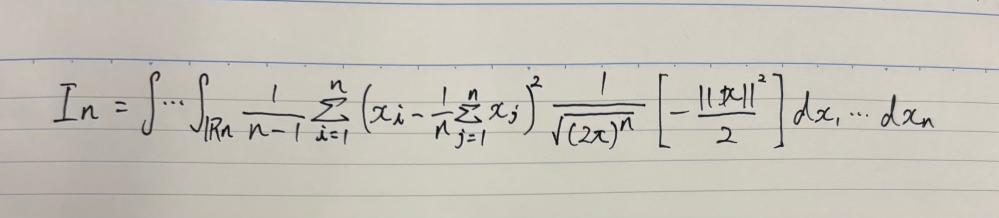 $I_n = \int \cdots \int_{\mathbb{R}^n} \frac{1}{n-1} \sum_{i=1}^{n} \left( x_i - \frac{1}{n} \sum_{j=1}^{n} x_j \right)^2 \frac{1}{\sqrt{(2\pi)^n}} \left[ -\frac{||\mathbb{x}||^2}{2} \right] dx_1 \cdots dx_n$